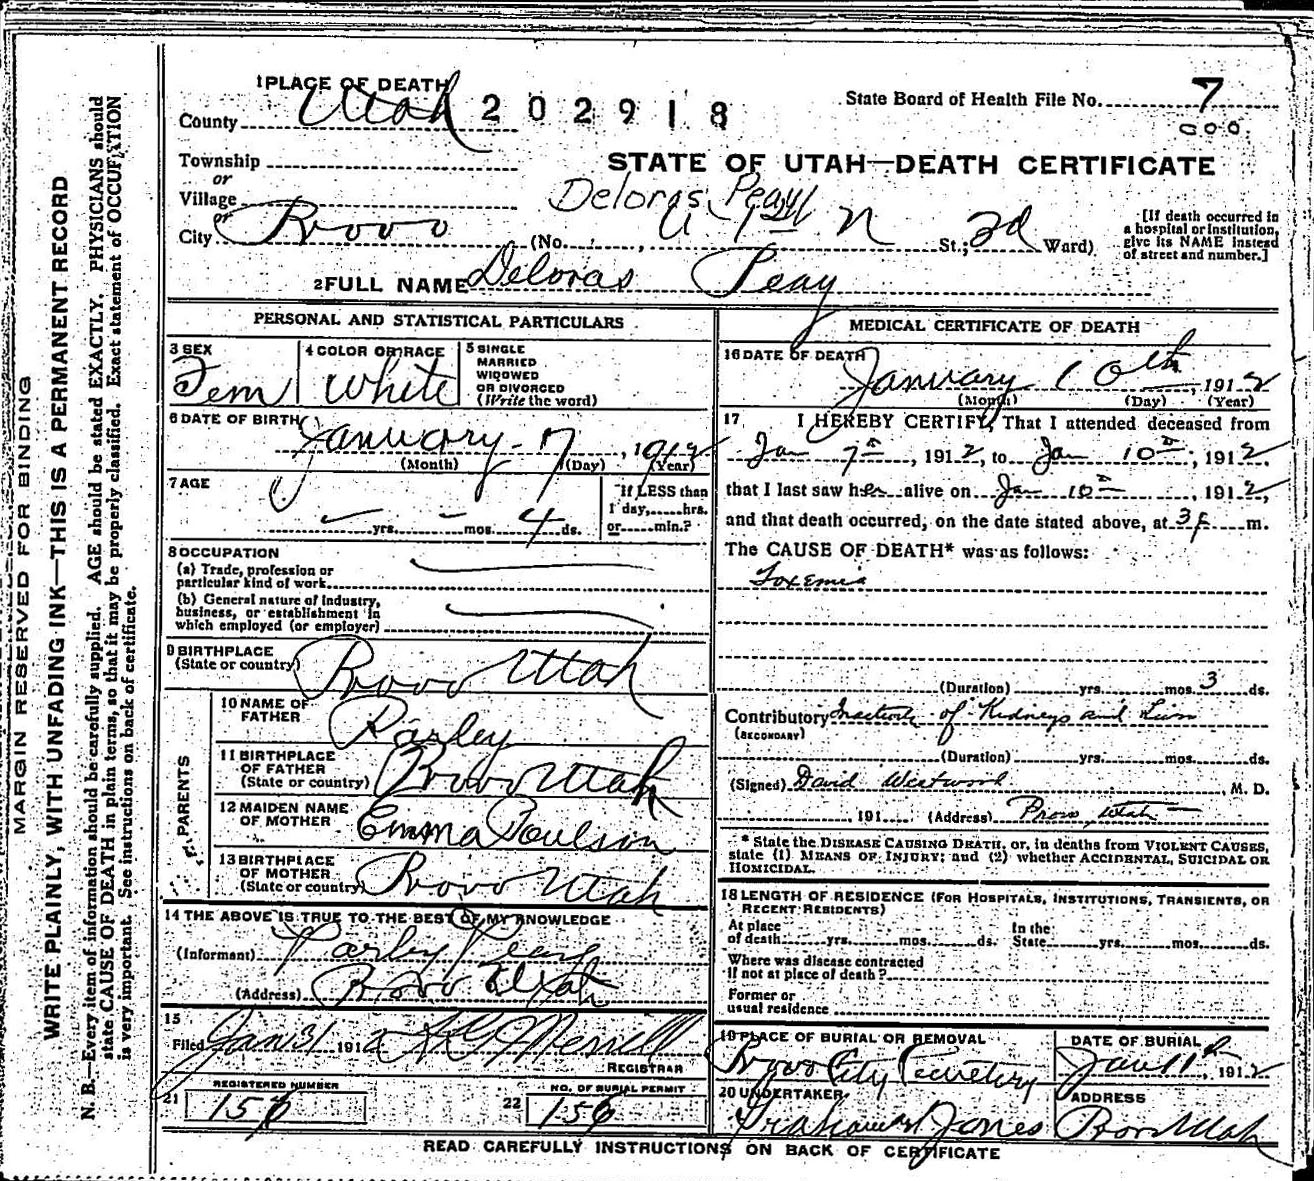 1 PLACE OF DEATH
County Utah
202918
State Board of Health File No. 7
000
Township
or
Village
or
City Provo
STATE OF UTAH—DEATH CERTIFICATE
Deloras Peay
(No. , St.; 3d Ward)
[If death occurred in a hospital or institution, give its NAME instead of street and number.]
2 FULL NAME Deloras Peay
PERSONAL AND STATISTICAL PARTICULARS
3 SEX
Fem
4 COLOR OR RACE
White
5 SINGLE
MARRIED
WIDOWED
OR DIVORCED
(Write the word)
6 DATE OF BIRTH
January 7, 1912
(Month) (Day) (Year)
7 AGE
– yrs. – mos. 4 ds.
If LESS than
1 day, hrs.
or min.?
8 OCCUPATION
(a) Trade, profession or
particular kind of work
(b) General nature of industry,
business, or establishment in
which employed (or employer)
9 BIRTHPLACE
(State or country)
Provo Utah
PARENTS
10 NAME OF
FATHER
Parley
11 BIRTHPLACE
OF FATHER
(State or country)
Provo Utah
12 MAIDEN NAME
OF MOTHER
Emma Poulson
13 BIRTHPLACE
OF MOTHER
(State or country)
Provo Utah
14 THE ABOVE IS TRUE TO THE BEST OF MY KNOWLEDGE
(Informant) Parley Peay
(Address) Provo Utah
15
Filed Jan 31 1912 Merrill
REGISTRAR
21 REGISTERED NUMBER
156
22 NO. OF BURIAL PERMIT
156
MEDICAL CERTIFICATE OF DEATH
16 DATE OF DEATH
January 10th, 1912
(Month) (Day) (Year)
17 I HEREBY CERTIFY, That I attended deceased from
Jan 7th, 1912, to Jan 10th, 1912,
that I last saw her alive on Jan 10th, 1912,
and that death occurred, on the date stated above, at 3 P m.
The CAUSE OF DEATH* was as follows:
Toxemia
(Duration) yrs. mos. 3 ds.
Contributory of Kidneys and
(SECONDARY)
(Duration) yrs. mos. ds.
(Signed) David Westwood, M. D.
, 191 (Address) Provo, Utah
* State the DISEASE CAUSING DEATH, or, in deaths from VIOLENT CAUSES,
state (1) MEANS OF INJURY; and (2) whether ACCIDENTAL, SUICIDAL OR
HOMICIDAL.
18 LENGTH OF RESIDENCE (FOR HOSPITALS, INSTITUTIONS, TRANSIENTS, OR
RECENT RESIDENTS)
At place
of death yrs. mos. ds.
In the
State yrs. mos. ds.
Where was disease contracted
if not at place of death?
Former or
usual residence
19 PLACE OF BURIAL OR REMOVAL
Provo City Cemetery
DATE OF BURIAL
Jan 11th, 1912
20 UNDERTAKER
Graham Jones
ADDRESS
Provo Utah
READ CAREFULLY INSTRUCTIONS ON BACK OF CERTIFICATE
MARGIN RESERVED FOR BINDING
WRITE PLAINLY, WITH UNFADING INK—THIS IS A PERMANENT RECORD
N. B.—Every item of information should be carefully supplied. AGE should be stated EXACTLY. PHYSICIANS should
state CAUSE OF DEATH in plain terms, so that it may be properly classified. Exact statement of OCCUPATION
is very important. See instructions on back of certificate.